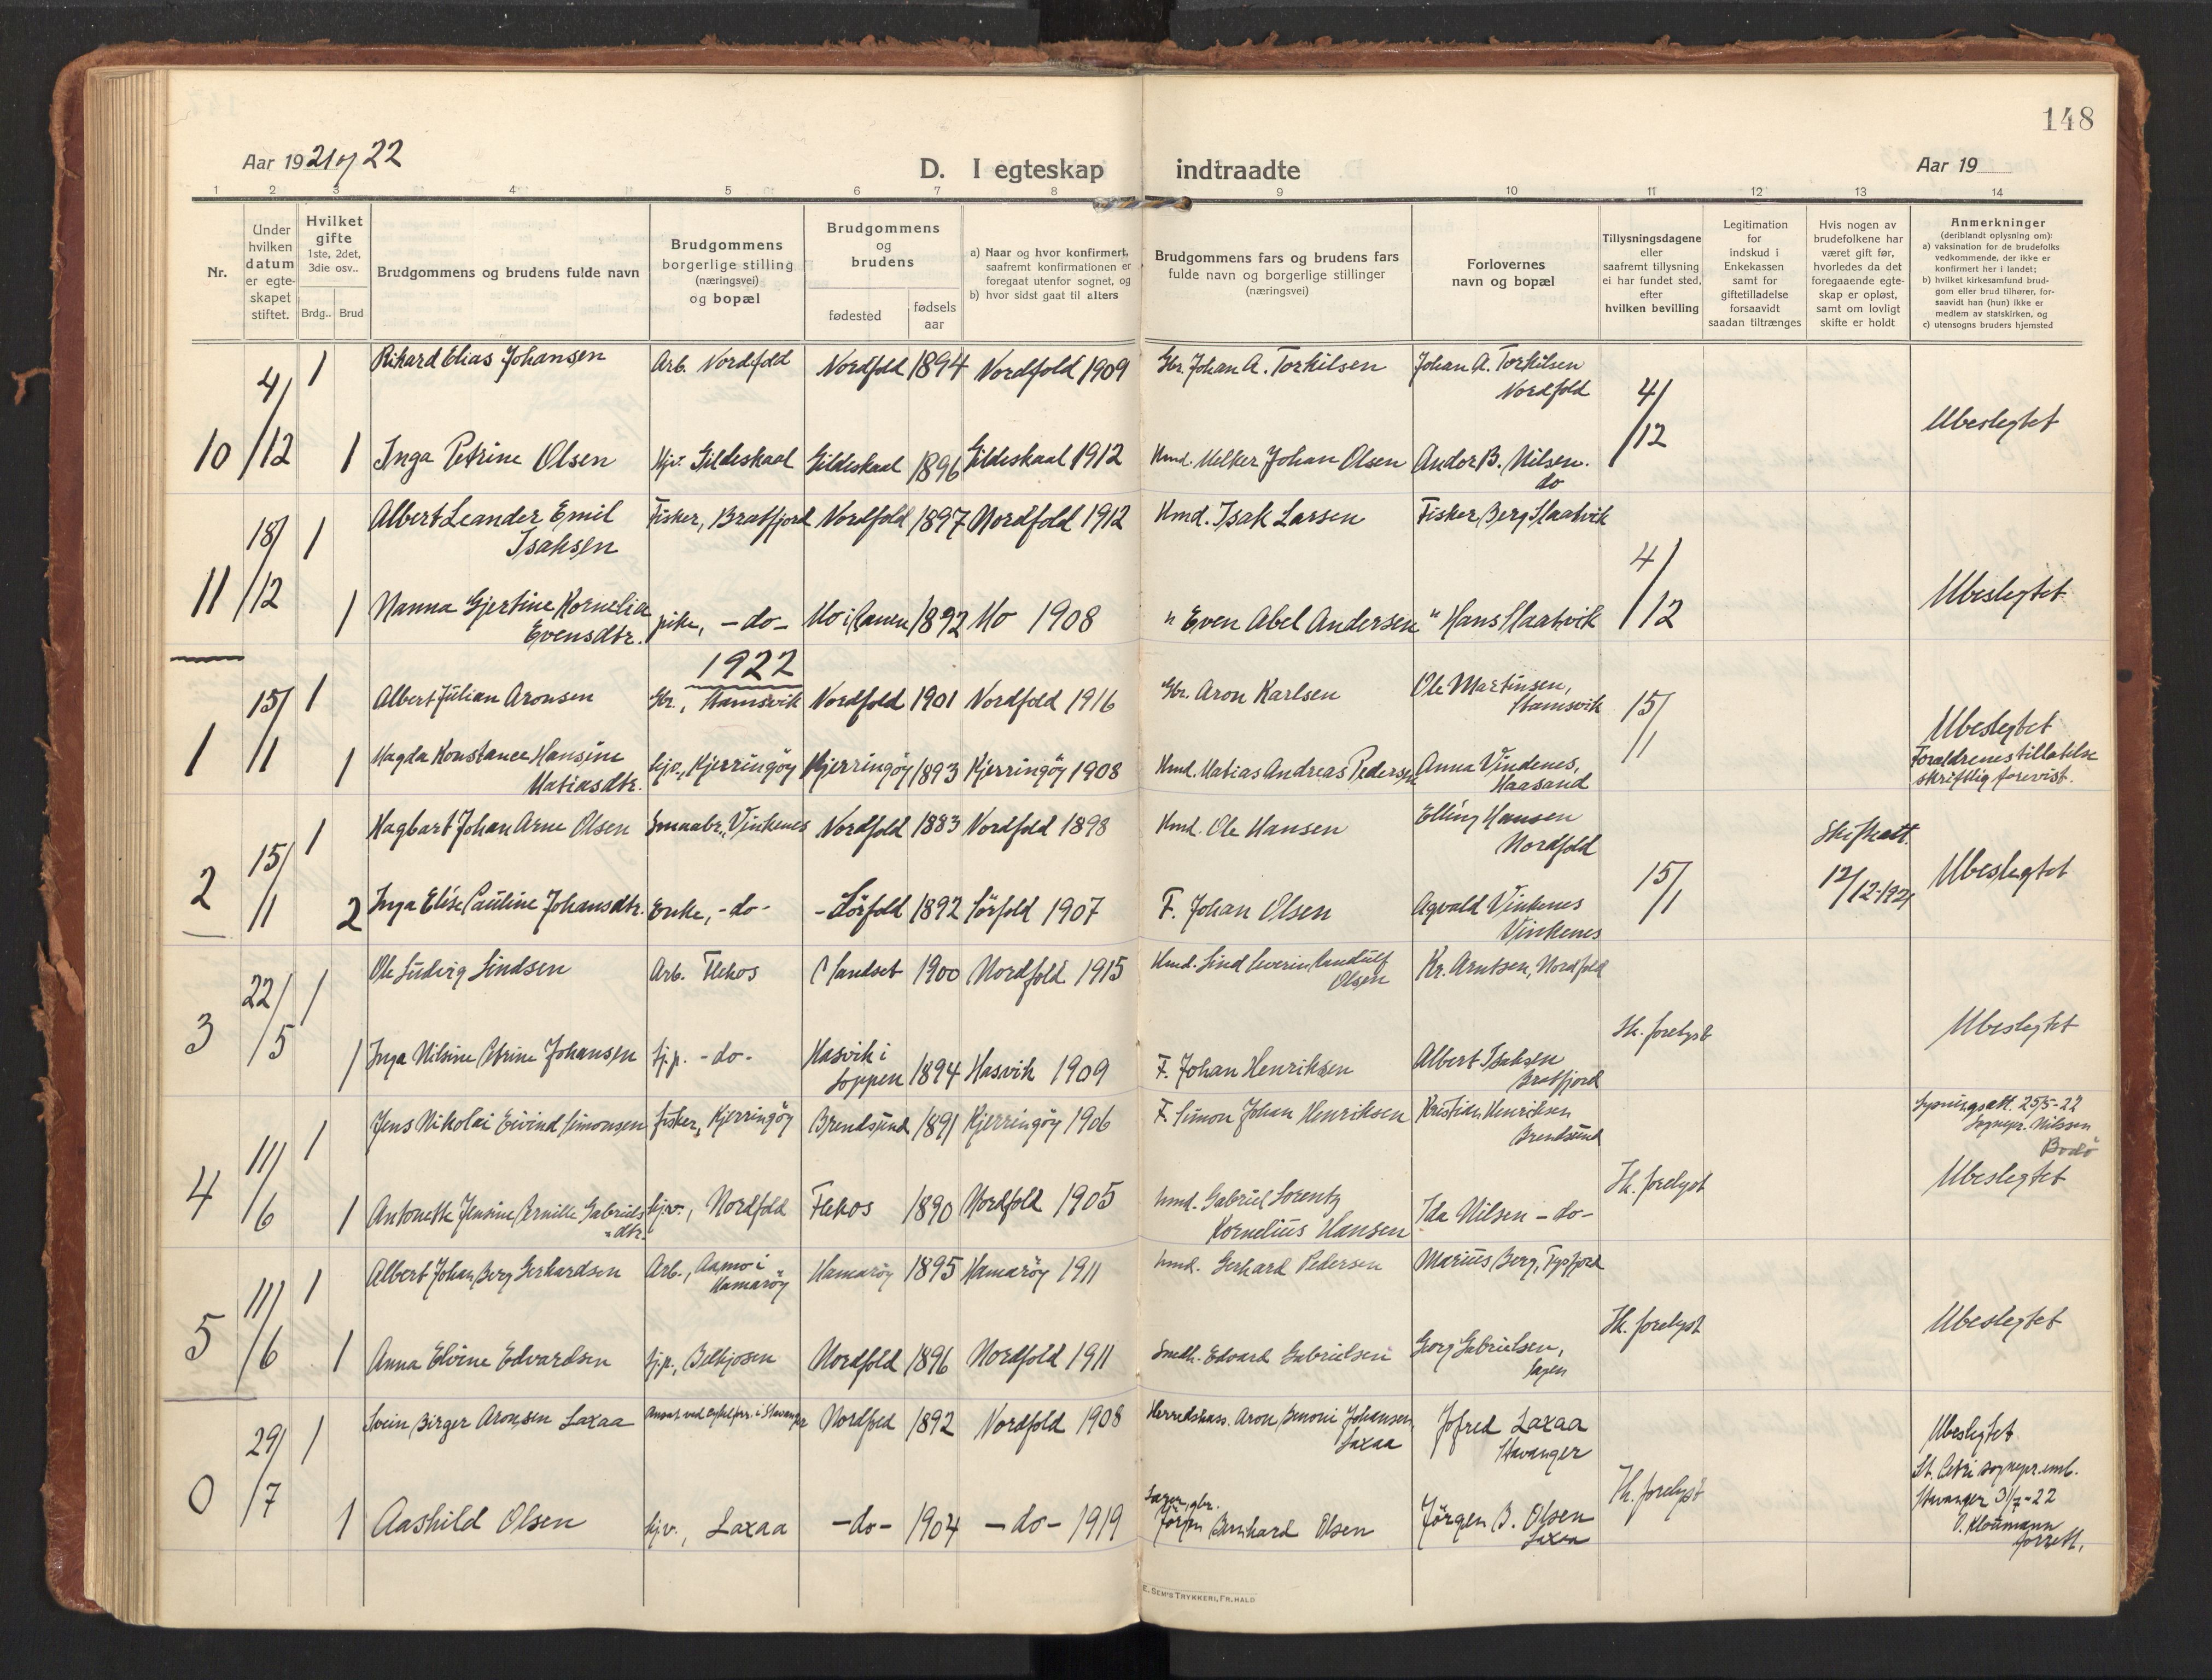 148
Aar 1921 og 22
D. I egteskap indtraadte
Aar 19
1 2 3 4 5 6 7 8 9 10 11 12 13 14
Nr.
Under hvilken datum er egte-skapet stiftet.
Hvilket gifte
1ste, 2det, 3die osv..
Brdg.. Brud
Brudgommens og brudens fulde navn
Brudgommens borgerlige stilling (næringsvei) og bopæl
Brudgommens og brudens
fødested
fødsels aar
a) Naar og hvor konfirmert, saafremt konfirmationen er foregaat utenfor sognet, og
b) hvor sidst gaat til alters
Brudgommens fars og brudens fars fulde navn og borgerlige stillinger (næringsvei)
Forlovernes navn og bopæl
Tillysningsdagene eller saafremt tillysning ei har fundet sted, efter hvilken bevilling
Legitimation for indskud i Enkekassen samt for giftetilladelse forsaavidt saadan tiltrænges
Hvis nogen av brudefolkene har været gift før, hvorledes da det foregaaende egte-skap er opløst, samt om lovligt skifte er holdt
Anmerkninger
(deriblandt oplysning om):
a) vaksination for de brudefolks vedkommende, der ikke er konfirmert her i landet;
b) hvilket kirkesamfund brud-gom eller brud tilhører, for-saavidt han (hun) ikke er medlem av statskirken, og
c) utensogns bruders hjemsted
10 4/12 1 Rikard Elias Johansen Arb. Nordfold Nordfold 1894 Nordfold 1909 Gbr. Johan A. Torkilsen Johan A. Torkilsen Nordfold 4/12 Ubeslegtet
1 Inga Petrine Olsen Hjv. Gildeskaal Gildeskaal 1896 Gildeskaal 1912 Kmd. Melker Johan Olsen Andor B. Nilsen. do
11 18/12 1 Albert Leander Emil Isaksen Fisker, Bratfjord Nordfold 1897 Nordfold 1912 Kmd. Isak Larsen Fisker Berg Slaatvik 4/12 Ubeslegtet
1 Nanna Gjertine Kornelia Evensdtr. pike, -do- Mo i Ranen 1892 Mo 1908 " Even Abel Andersen " Hans Slaatvik
1922
1 15/1 1 Albert Julian Aronsen Gbr., Stamsvik Nordfold 1901 Nordfold 1916 Gbr. Aron Karlsen Ole Martinsen, Stamsvik 15/1 Ubeslegtet
Forældrenes tillatelse skriftlig forevist.
1 Magda Konstance Hansine Matiasdtr. Hjv., Kjerringöy Kjerringöy 1893 Kjerringöy 1908 Kmd. Matias Andreas Pedersen Anna Vindenes, Haasand
2 15/1 1 Hagbart Johan Arne Olsen Smaabr., Vinkenes Nordfold 1883 Nordfold 1898 Kmd. Ole Hansen Elling Hansen Nordfold 15/1 Skifteatt. 12/12-1921 Ubeslegtet
2 Inga Elise Pauline Johansdtr. Enke, -do- -Sörfold 1892 Sörfold 1907 F. Johan Olsen Agvald Vinkenes Vinkenes
3 22/5 1 Ole Ludvig Lindsen Arb. Flekos Sandset 1900 Nordfold 1915 Kmd. Lind Severin Randulf Olsen Kr. Arntsen, Nordfold Th. forelyst Ubeslegtet
1 Inga Nilsine Petrine Johansen tj.p. -do- Hasvik i Loppen 1894 Hasvik 1909 F. Johan Henriksen Albert Isaksen Bratfjord
4 11/6 1 Jens Nikolai Eivind Simonsen fisker, Kjerringöy Brendsund 1891 Kjerringöy 1906 F. Simon Johan Henriksen Kristian Henriksen Brendsund Th. forelyst Lysningsatt. 25/5-22 Sognepr. Nilssen Bodö
Ubeslegtet
1 Antonette Jensine Pernille Gabriels-dtr. hjv., Nordfold Flekos 1890 Nordfold 1905 kmd. Gabriel Lorentz Kornelius Hansen Ida Nilsen -do-
5 11/6 1 Albert Johan Berg Gerhardsen Arb., Aamo i Hamaröy Hamaröy 1895 Hamaröy 1911 kmd. Gerhard Pedersen Marius Berg, Tysfjord Th. forelyst Ubeslegtet
1 Anna Elvine Edvardsen tj.p., Nordfold 1896 Nordfold 1911 Edvard Gabrielsen Georg Gabrielsen,
0 29/7 1 Svein Birger Aronsen Laxaa i Stavanger Nordfold 1892 Nordfold 1908 Herredskass. Aron Benoni Johansen, Laxaa Jofred Laxaa Stavanger Th. forelyst Ubeslegtet
St. Petri sognepr.emb. Stavanger 31/7-22
O. Kloumann forrett.
1 Aashild Olsen hjv., Laxaa -do- 1904 -do- 1919 gbr. Jörgen Bernhard Olsen Jörgen B. Olsen Laxaa
E. SEM'S TRYKKERI, FR.HALD